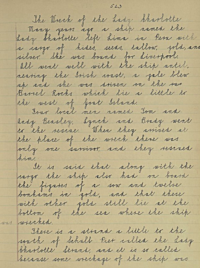 523
The Wreck of the Lady Charlotte
Many years ago a ship named the
Lady Charlotte left Lima in Peru with
a cargo of hides, seeds, tallow, gold, and
silver. She was bound for Liverpool.
All went well with the ship until,
nearing the Irish coast, a gale blew
up and she was driven on the
Barrel Rocks which lie a little to
the west of Goat Island.
Four local men named Tom and
Lady and Brady went
to the rescue. When they arrived at
the place of the wreck there was
only one survivor and they rescued
him.
It is said that along with the
cargo the ship also had on board
the figures of a sow and twelve
bonhams in gold, and that these
with other gold still lie at the
bottom of the sea where the ship
wrecked.
There is a strand a little to the
north of called the Lady
Charlotte Strand, and it is so called
because some wreckage of the ship was